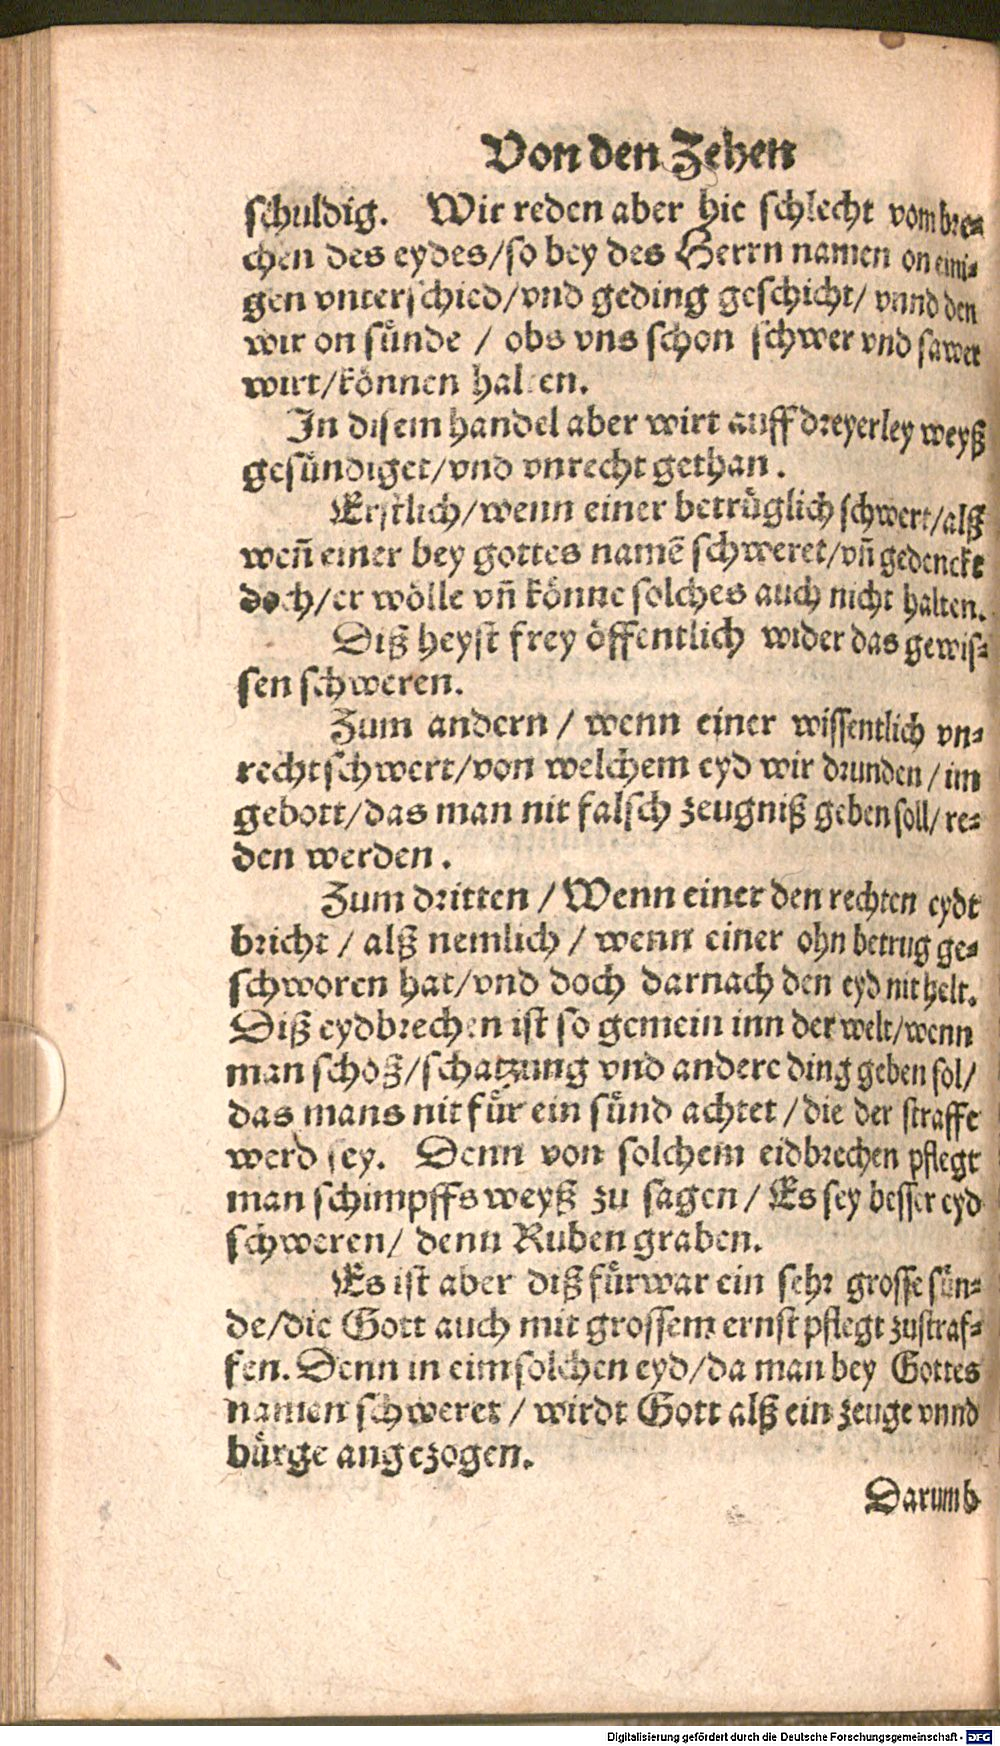 Von den Zehen
schuldig. Wir reden aber hie schlecht vom bre-
chen des eydes/so bey des Herrn namen on eini-
gen vnterschied/vnd geding geschicht/ vnnd den
wir on sünde / obs vns schon schwer vnd sawer
wirt/können halten.
In disem handel aber wirt auff dreyerley weyß
gesündiget/vnd vnrecht gethan.
Erstlich/wenn einer betrüglich schwert/alß
weñ einer bey gottes namẽ schweret/vñ gedencke
doch/er wölle vñ könne solches auch nicht halten.
Diß heyst frey öffentlich wider das gewis-
sen schweren.
Zum andern / wenn einer wissentlich vn-
recht schwert/von welchem eyd wir drunden / im
gebott/das man nit falsch zeugniß geben soll/ re-
den werden.
Zum dritten / Wenn einer den rechten eydt
bricht / alß nemlich / wenn einer ohn betrug ge-
schworen hat/vnd doch darnach den eyd nit helt.
Diß eydbrechen ist so gemein inn der welt/wenn
man schoß/schatzung vnd andere ding geben sol/
das mans nit für ein sünd achtet / die der straffe
werd sey. Denn von solchem eidbrechen pflegt
man schimpffs weyß zu sagen / Es sey besser eyd
schweren/ denn Ruben graben.
Es ist aber diß fürwar ein sehr grosse sün-
de/die Gott auch mit grossem ernst pflegt zustraf-
fen. Denn in eim solchen eyd/da man bey Gottes
namen schweret / wirdt Gott alß ein zeuge vnnd
bürge angezogen.
Darumb
Digitalisierung gefördert durch die Deutsche Forschungsgemeinschaft - DFG